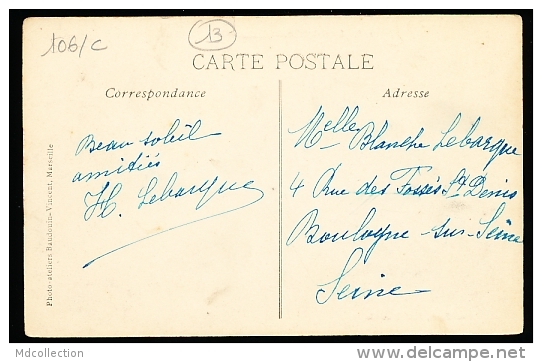 106/C
13
CARTE POSTALE
Correspondance
Adresse
Beau soleil
amitiés
H. Lebarque
Melle Blanche Lebarque
4 Rue des Fossés St Denis
Boulogne-sur-Seine
Seine
Photo-ateliers Baudouin-Vincent, Marseille
Mdcollection
http://www.delcampe.net